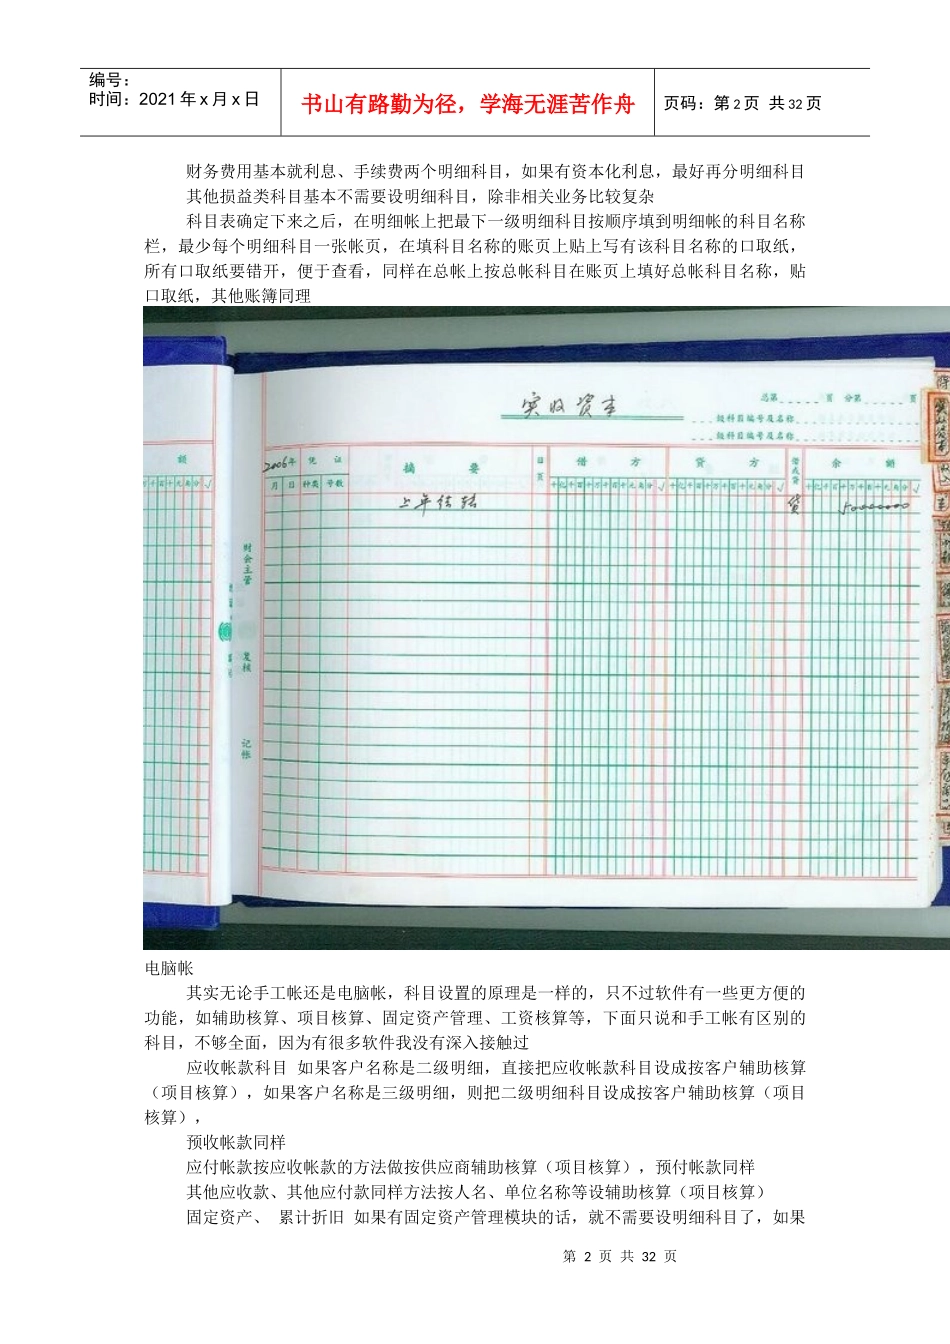 编号：
时间：2021年x月x日
书山有路勤为径，学海无涯苦作舟
页码：第2页 共32页
财务费用基本就利息、手续费两个明细科目，如果有资本化利息，最好再分明细科目
其他损益类科目基本不需要设明细科目，除非相关业务比较复杂
科目表确定下来之后，在明细帐上把最下一级明细科目按顺序填到明细帐的科目名称
栏，最少每个明细科目一张帐页，在填科目名称的账页上贴上写有该科目名称的口取纸，
所有口取纸要错开，便于查看，同样在总帐上按总帐科目在账页上填好总帐科目名称，贴
口取纸，其他账簿同理
实收资本
总第 页 分第 页
级科目编号及名称
级科目编号及名称
额
2006年 凭 证
摘 要
日页
借 方
贷 方
借或贷
余 额
月 日 种类 号数
千百十万千百十元角分√
上年结转
贷
50000000
财会主管
复核
记帐
电脑帐
其实无论手工帐还是电脑帐，科目设置的原理是一样的，只不过软件有一些更方便的
功能，如辅助核算、项目核算、固定资产管理、工资核算等，下面只说和手工帐有区别的
科目，不够全面，因为有很多软件我没有深入接触过
应收帐款科目 如果客户名称是二级明细，直接把应收帐款科目设成按客户辅助核算
（项目核算），如果客户名称是三级明细，则把二级明细科目设成按客户辅助核算（项目
核算），
预收帐款同样
应付帐款按应收帐款的方法做按供应商辅助核算（项目核算），预付帐款同样
其他应收款、其他应付款同样方法按人名、单位名称等设辅助核算（项目核算）
固定资产、 累计折旧 如果有固定资产管理模块的话，就不需要设明细科目了，如果
第 2 页 共 32 页